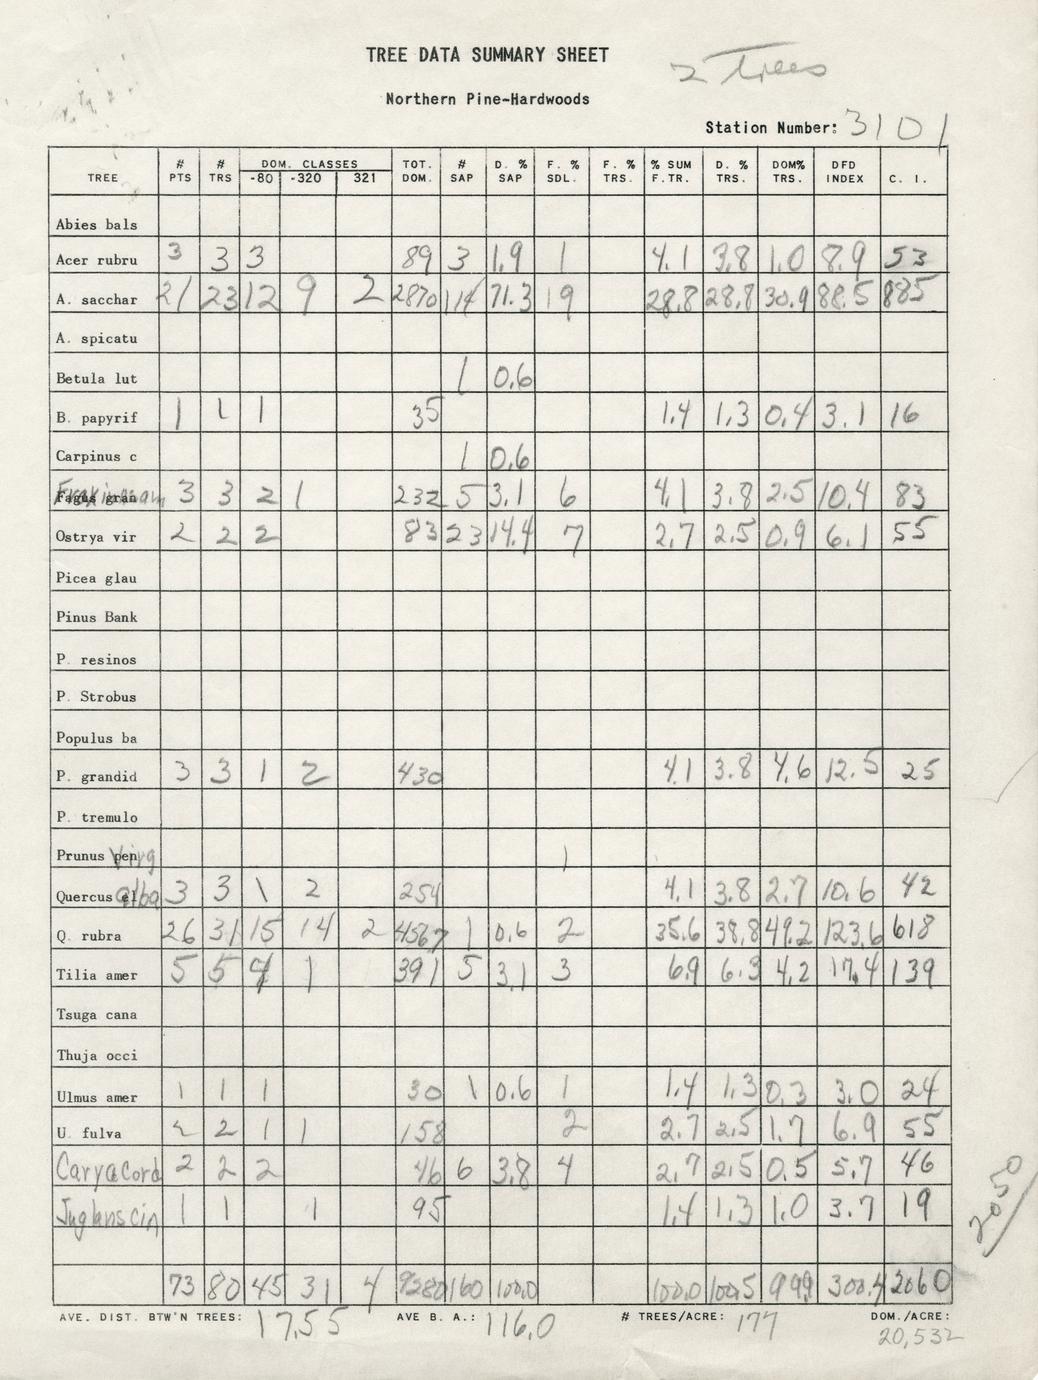 TREE DATA SUMMARY SHEET
2 Trees
Northern Pine-Hardwoods
Station Number: 3101
TREE # PTS # TRS DOM. CLASSES -80 -320 321 TOT. DOM. # SAP D. % SAP F. % SDL. F. % TRS. % SUM F.TR. D. % TRS. DOM% TRS. DFD INDEX C. I.
Abies bals
Acer rubru 3 3 3 89 3 1.9 1 4.1 3.8 1.0 8.9 53
A. sacchar 21 23 12 9 2 2870 114 71.3 19 28.8 28.8 30.9 88.5 885
A. spicatu
Betula lut 1 0.6
B. papyrif 1 1 1 35 1.4 1.3 0.4 3.1 16
Carpinus c 1 0.6
Fagus gran Fraxinus am 3 3 2 1 232 5 3.1 6 4.1 3.8 2.5 10.4 83
Ostrya vir 2 2 2 83 23 14.4 7 2.7 2.5 0.9 6.1 55
Picea glau
Pinus Bank
P. resinos
P. Strobus
Populus ba
P. grandid 3 3 1 2 430 4.1 3.8 4.6 12.5 25
P. tremulo
Prunus pen Virg 1
Quercus el alba 3 3 1 2 254 4.1 3.8 2.7 10.6 42
Q. rubra 26 31 15 14 2 4567 1 0.6 2 35.6 38.8 49.2 123.6 618
Tilia amer 5 5 4 1 391 5 3.1 3 6.9 6.3 4.2 17.4 139
Tsuga cana
Thuja occi
Ulmus amer 1 1 1 30 1 0.6 1 1.4 1.3 0.3 3.0 24
U. fulva 2 2 1 1 158 2 2.7 2.5 1.7 6.9 55
Carya Cord 2 2 2 46 6 3.8 4 2.7 2.5 0.5 5.7 46
Juglans cin 1 1 1 95 1.4 1.3 1.0 3.7 19
2050
73 80 45 31 4 9280 160 100.0 100.0 100.5 99.9 300.4 2060
AVE. DIST. BTW'N TREES: 17.55 AVE B. A.: 116.0 # TREES/ACRE: 177 DOM./ACRE: 20,532